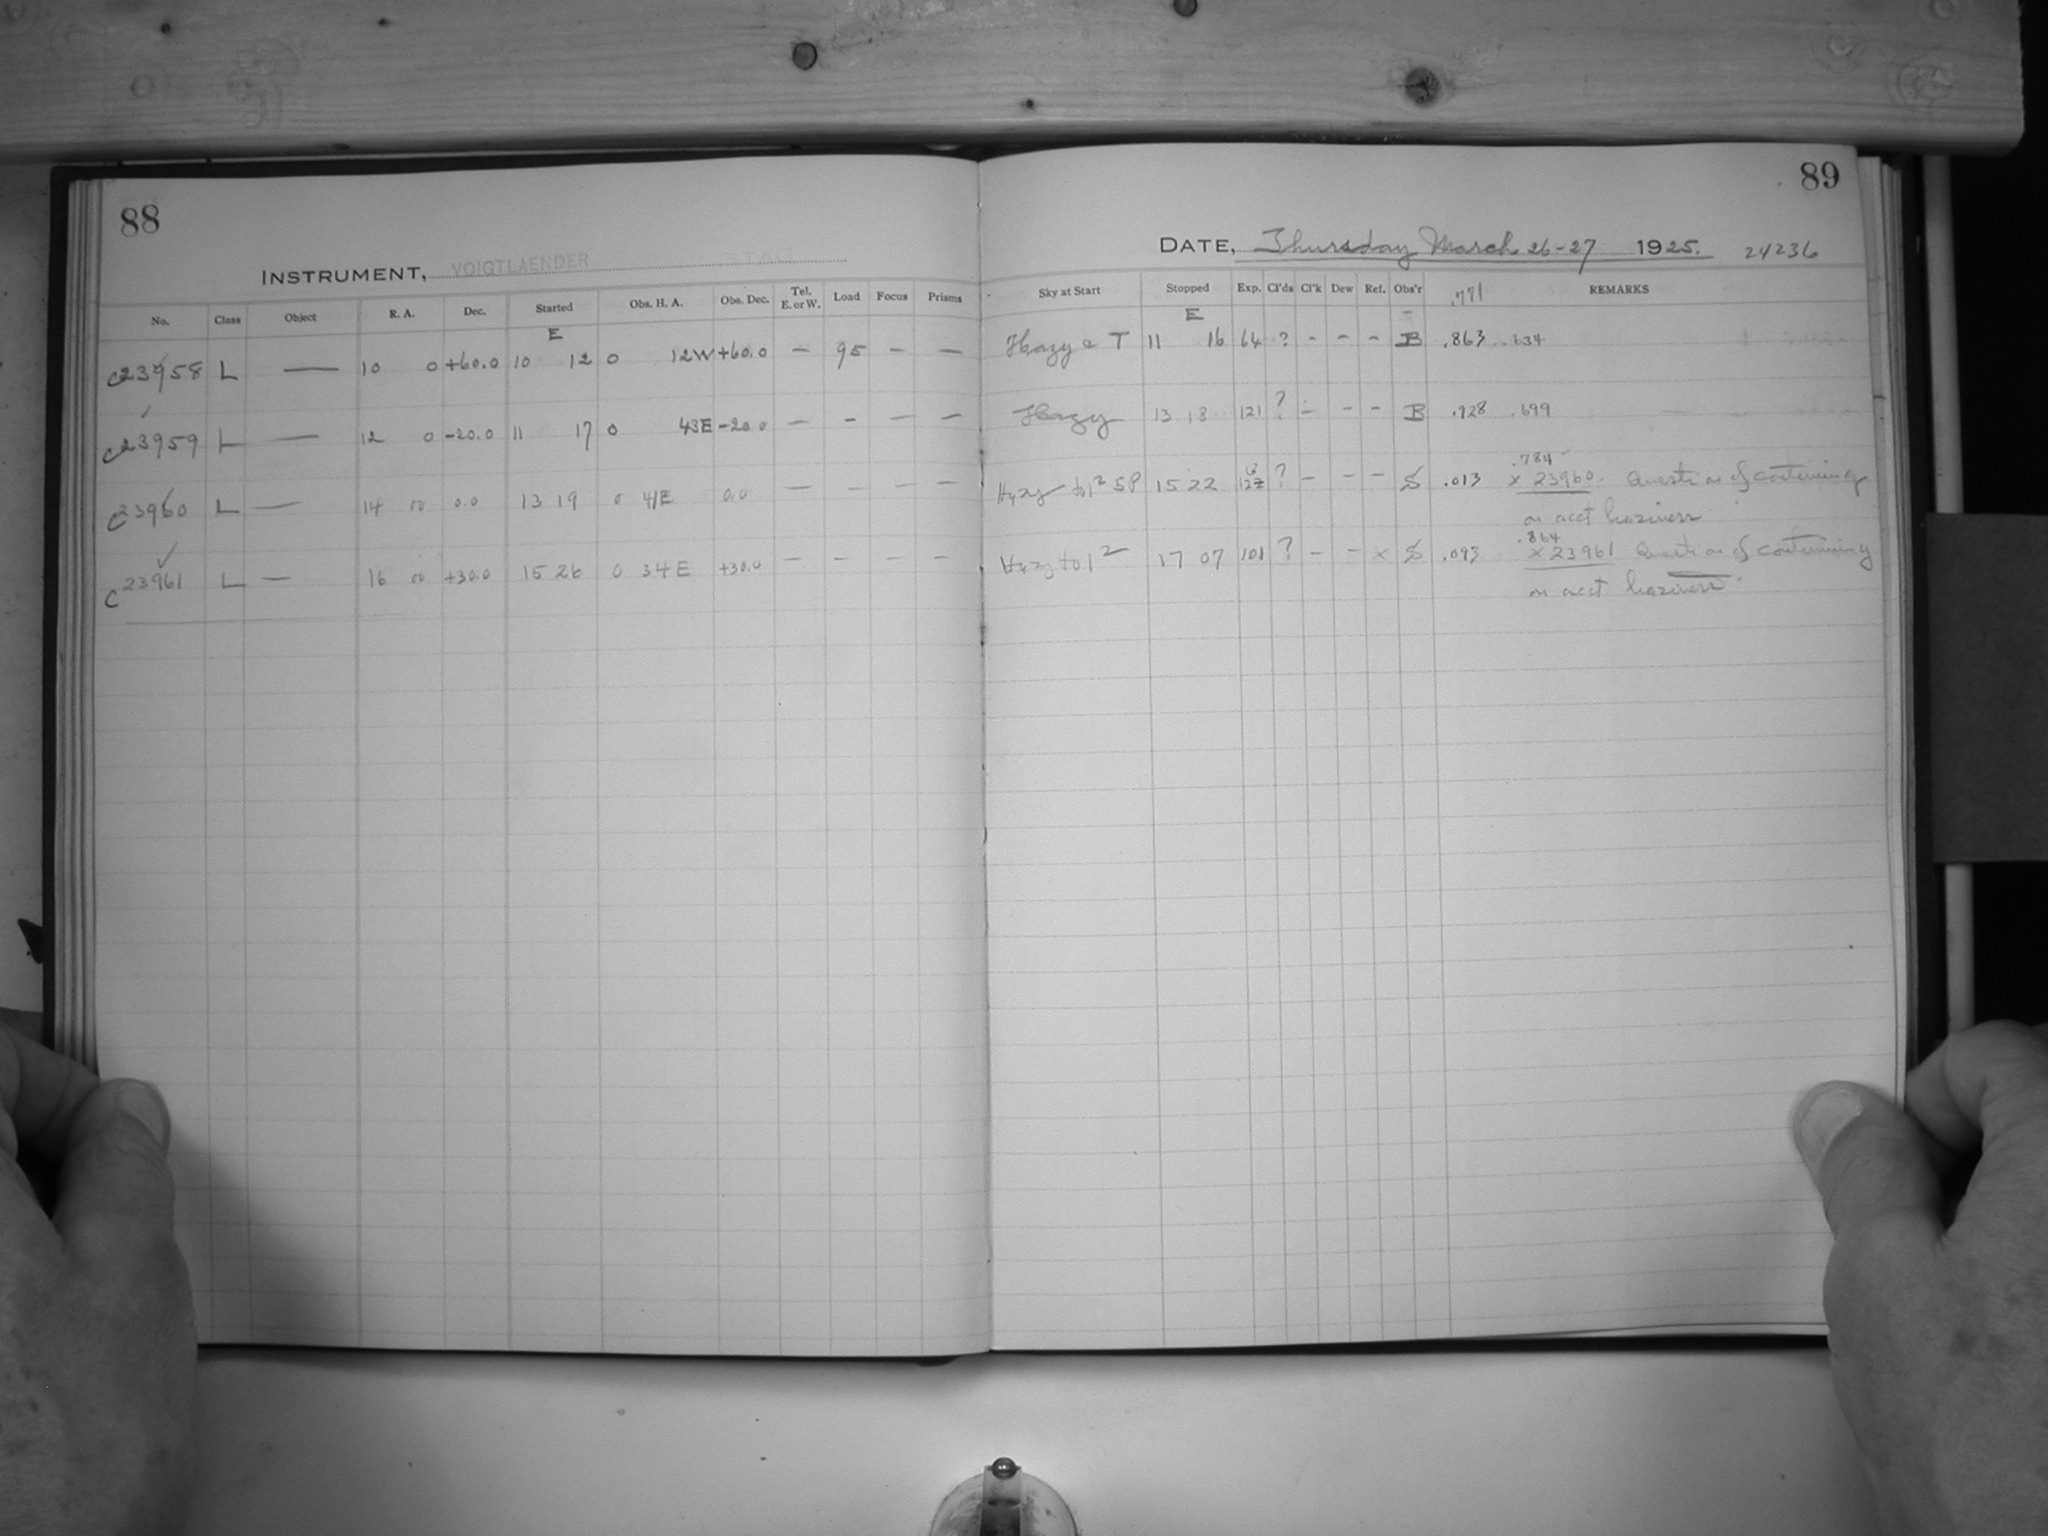 88
INSTRUMENT, VOIGTLAENDER
No. Class Object R. A. Dec. Started Obs. H. A. Obs. Dec. Tel. E. or W. Load Focus Prisms
E
C23958 L — 10 0 +60.0 10 12 0 12W +60.0 — 95 — —
C23959 L — 12 0 -20.0 11 17 0 43E -20.0 — - — —
C23960 L — 14 00 0.0 13 19 0 41E 0.0 — — — —
C23961 L — 16 00 +30.0 15 26 0 34E +30.0 — — — —
89
DATE, Thursday March 26-27 1925. 24236
Sky at Start Stopped Exp. Cl'ds Cl'k Dew Ref. Obs'r .771 REMARKS
E
Hazy T 11 16 64 ? - - - B .863 .634
Hazy 13 18 121 ? - - - B .928 .699
.784
Hazy to 1² SP 15 22 ? - - - S .013 × 23960. Question of continuing
on acct haziness
.864
Hazy to 1² 17 07 101 ? - - × S .093 × 23961 Question of continuing
on acct haziness.